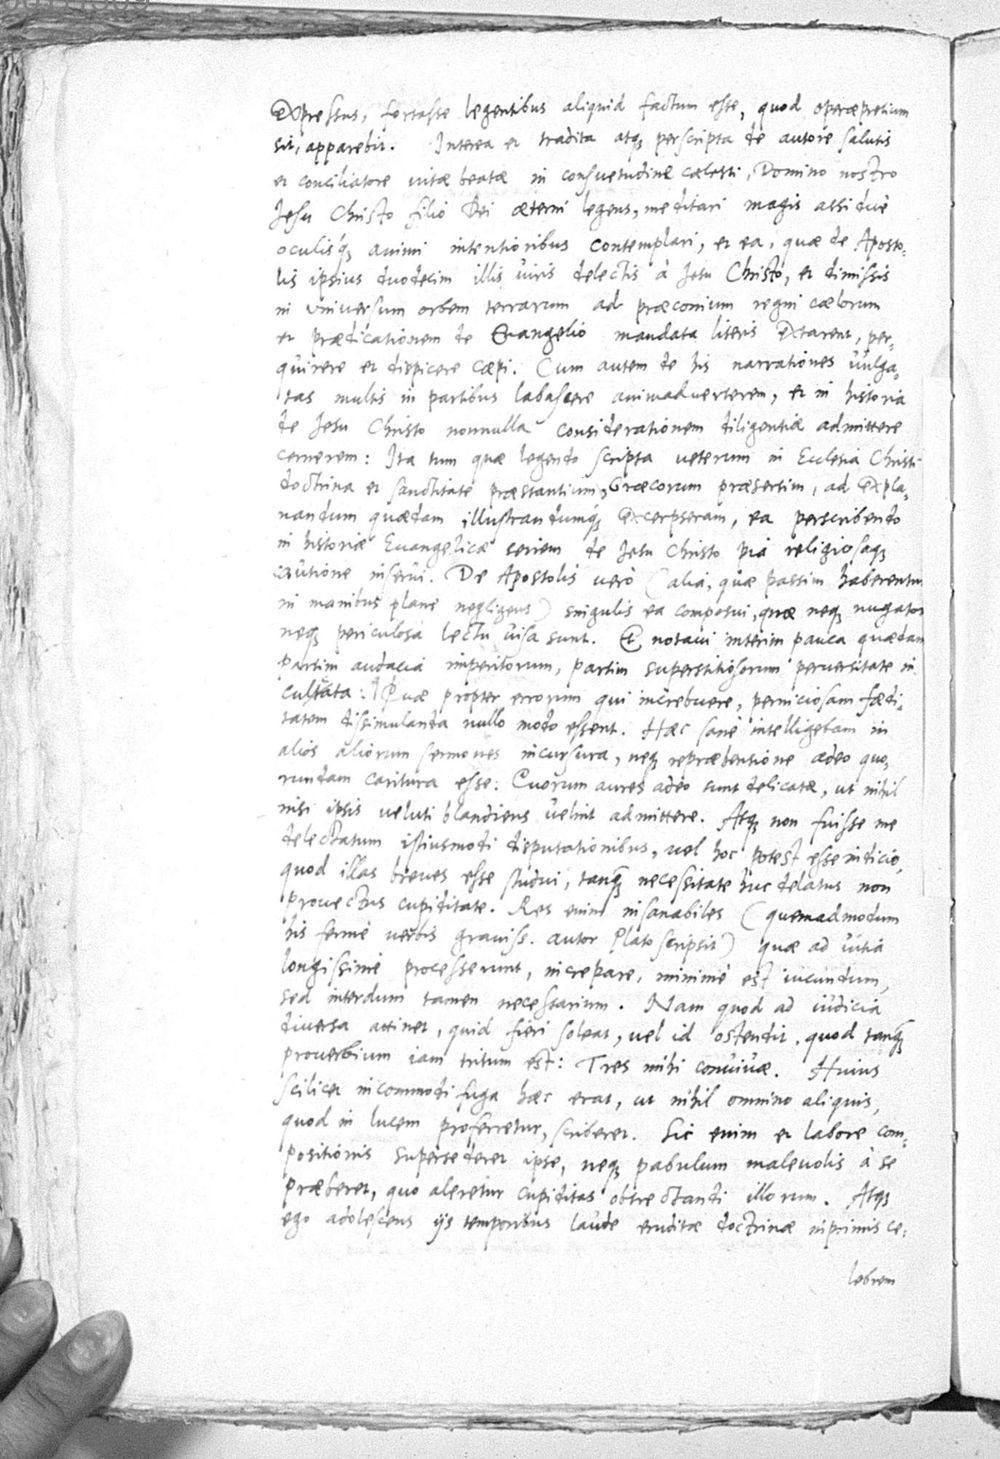 Expressus, fortasse legentibus aliquid factum esse, quod operæpretium
sit, apparebit. Interea et tradita atq; perscripta de autore salutis
et conciliatore vitæ beatæ in consuetudine cælesti, Domino nostro
Jesu Christo filio Dei æterni legens, meditari magis assiduè
oculisq; animi intentioribus contemplari, et ea, quæ de Aposto-
lis ipsius duodecim illis viris delectis à Jesu Christo, et dimissis
in vniuersum orbem terrarum ad præconium regni cælorum
et prædicationem de Euangelio mandata literis extarent, per-
quirere et dispicere cæpi. Cum autem de his narrationes vulga-
tas multis in partibus labascere animaduerterem, et in historia
de Jesu Christo nonnulla considerationem diligentiæ admittere
cernerem: Ita tum quæ legendo scripta veterum in Ecclesia Christi
doctrina et sanctitate præstantium, Græcorum præsertim, ad expla-
nandum quædam illustrandumq; excerpseram, ea perscribendo
in historiæ Euangelicæ seriem de Jesu Christo pia religiosaq;
cautione inserui. De Apostolis verò (alia, quæ passim haberentur
in manibus plane negligens) singulis ea composui, quæ neq; nugator
neq; periculosa lectu visa sunt. Et notaui interim pauca quædam
partim audacia imperitorum, partim superstitiosorum peruersitate in
culcata: Quæ propter errorum qui increbuere, perniciosam fædi-
tatem dissimulanda nullo modo essent. Hæc sanè intelligebam in
alios aliorum sermones incursura, neq; repræhensione adeo quo-
rundam caritura esse: Quorum aures adeo sunt delicatæ, ut nihil
nisi ipsis veluti blandiens velint admittere. Atq; non fuisse me
delectatum istiusmodi disputationibus, vel hoc potest esse indicio,
quod illas breues esse studui, tanq; necessitate huc delatus non
prouectus cupiditate. Res enim insanabiles (quemadmodum
his fermè verbis grauiss. autor Plato scripsit) quæ ad vitia
longissimè processerunt, increpare, minimè est iucundum,
sed interdum tamen necessarium. Nam quod ad iudicia
diuersa attinet, quid fieri soleat, vel id ostendit, quod tanq;
prouerbium iam tritum est: Tres mihi conuiuæ. Huius
scilicet incommodi fuga hæc erat, ut nihil omnino aliquis,
quod in lucem proferretur, scriberet. Sic enim et labore com-
positionis supersederet ipse, neq; pabulum maleuolis à se
præberet, quo aleretur cupiditas obtrectandi illorum. Atq;
ego adolescens ijs temporibus laude eruditæ doctrinæ inprimis ce-
lebrem